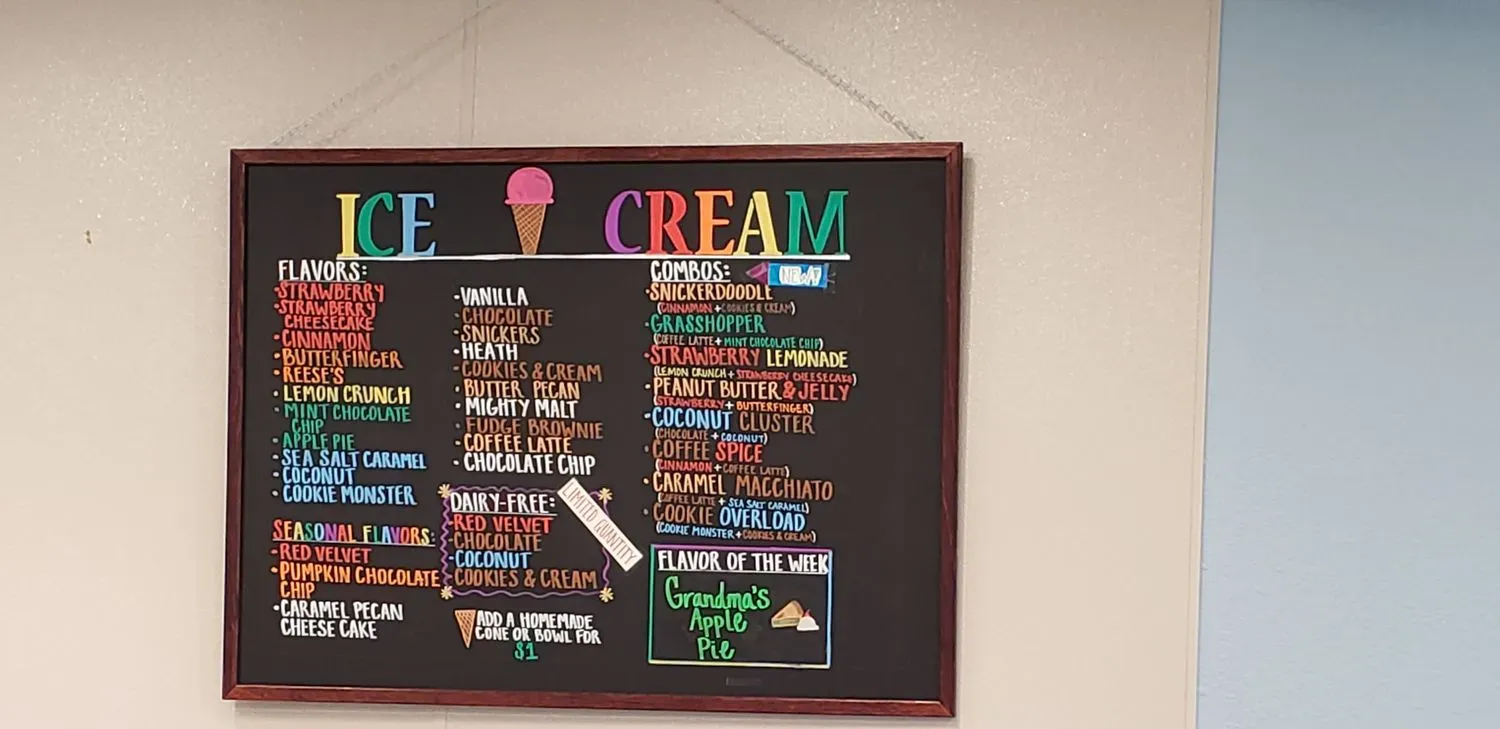 ICE CREAM
FLAVORS:
-STRAWBERRY
-STRAWBERRY
CHEESECAKE
-CINNAMON
-BUTTERFINGER
-REESE'S
-LEMON CRUNCH
-MINT CHOCOLATE
CHIP
-APPLE PIE
-SEA SALT CARAMEL
-COCONUT
-COOKIE MONSTER
SEASONAL FLAVORS:
-RED VELVET
-PUMPKIN CHOCOLATE
CHIP
-CARAMEL PECAN
CHEESE CAKE
-VANILLA
-CHOCOLATE
-SNICKERS
-HEATH
-COOKIES & CREAM
-BUTTER PECAN
-MIGHTY MALT
-FUDGE BROWNIE
-COFFEE LATTE
-CHOCOLATE CHIP
DAIRY-FREE:
LIMITED QUANTITY
-RED VELVET
-CHOCOLATE
-COCONUT
-COOKIES & CREAM
ADD A HOMEMADE
CONE OR BOWL FOR
$1
COMBOS:
-SNICKERDOODLE
(CINNAMON + COOKIES & CREAM)
-GRASSHOPPER
(COFFEE LATTE + MINT CHOCOLATE CHIP)
-STRAWBERRY LEMONADE
(LEMON CRUNCH + STRAWBERRY CHEESECAKE)
-PEANUT BUTTER & JELLY
(STRAWBERRY + BUTTERFINGER)
-COCONUT CLUSTER
(CHOCOLATE + COCONUT)
-COFFEE SPICE
(CINNAMON + COFFEE LATTE)
-CARAMEL MACCHIATO
(COFFEE LATTE + SEA SALT CARAMEL)
-COOKIE OVERLOAD
(COOKIE MONSTER + COOKIES & CREAM)
FLAVOR OF THE WEEK
Grandma's
Apple
Pie